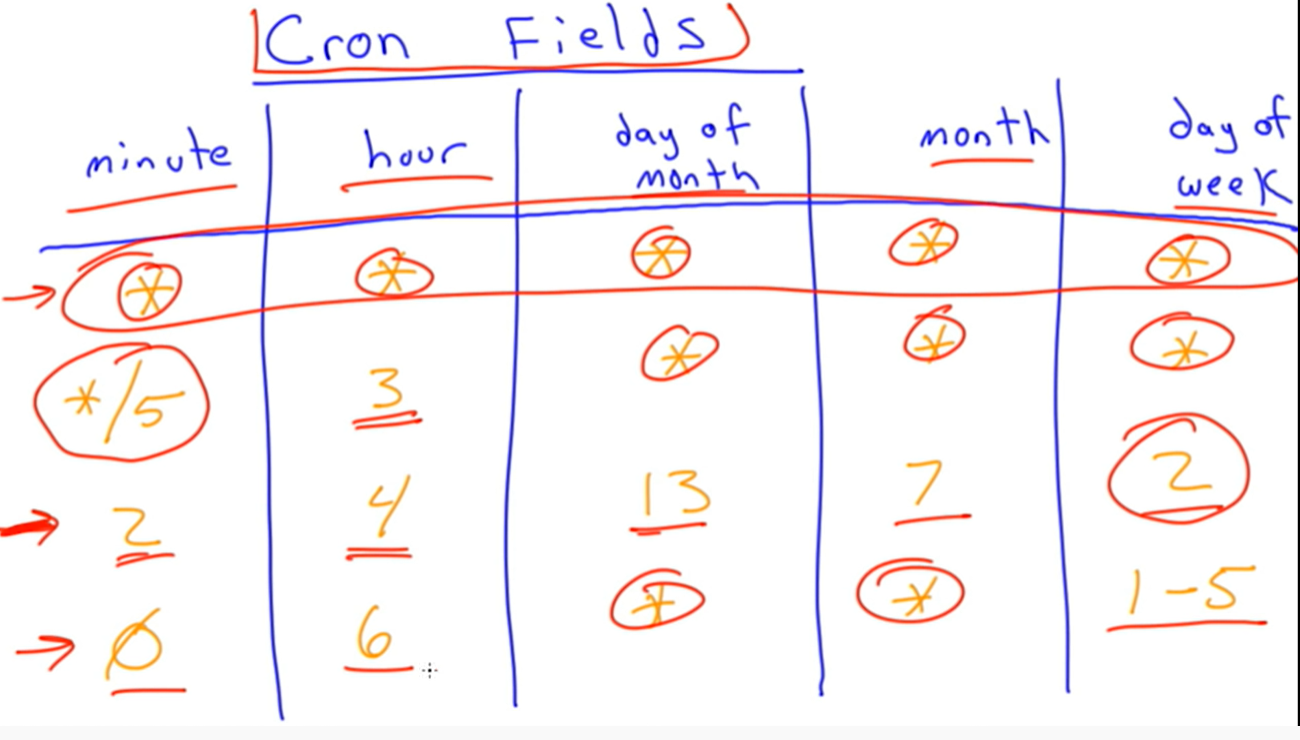 Cron Fields
minute hour day of month month day of week
* * * * *
*/5 3 * * *
2 4 13 7 2
0 6 * * 1-5